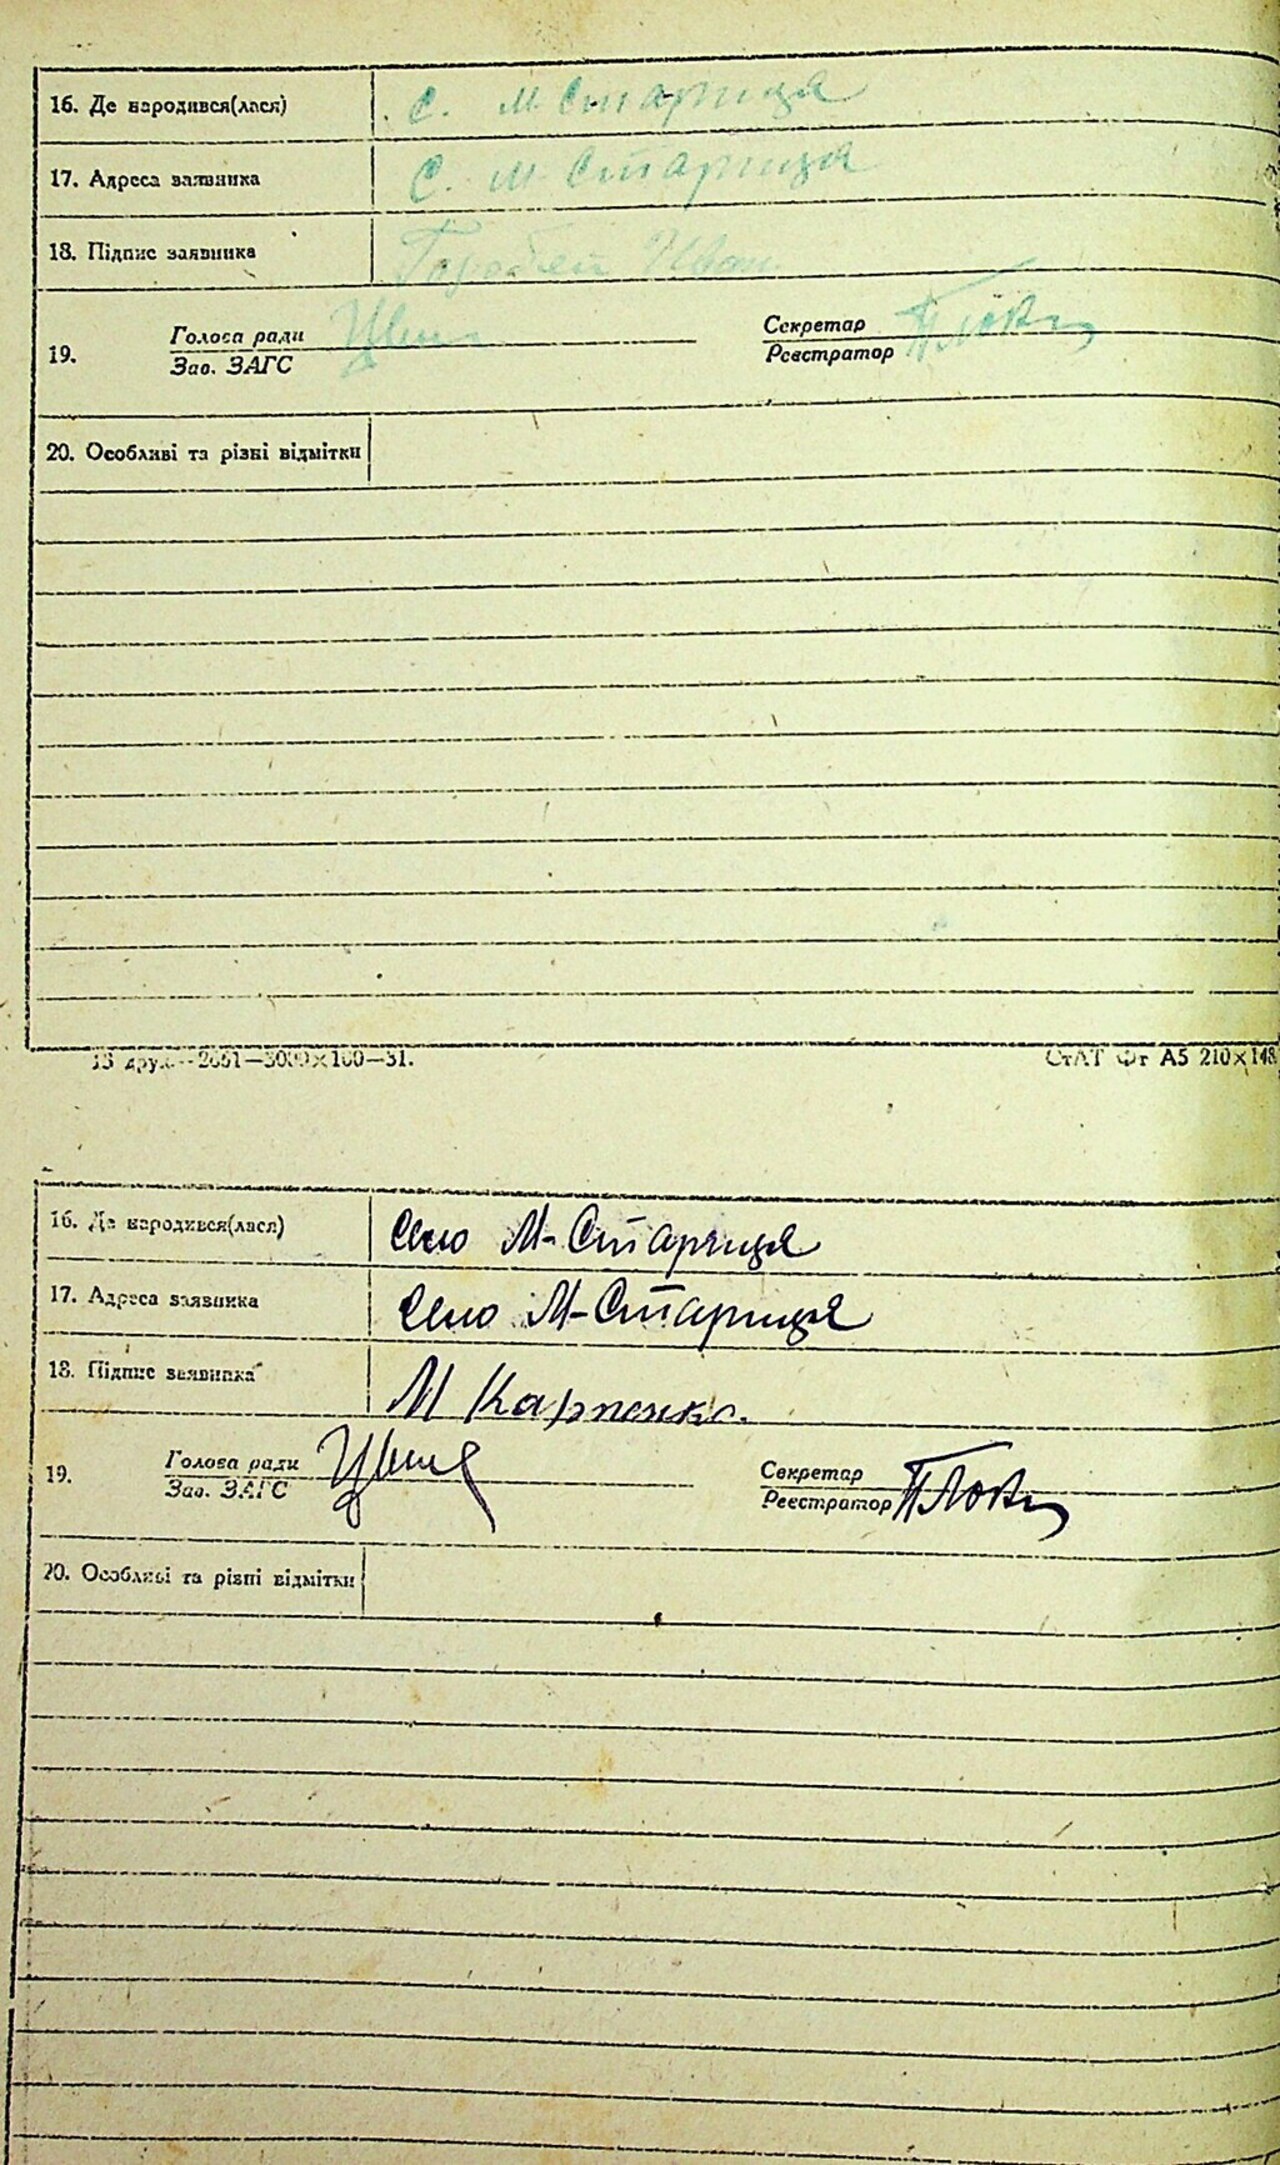 16. Де народився(лася) с. М Стариця
17. Адреса заявника с. М Стариця
18. Підпис заявника Горобей Иван
19. Голова ради Секретар
Зав. ЗАГС Реєстратор
20. Особливі та різні відмітки
13 друк.—2651—3000×100—31. СтАТ Фт А5 210×148
16. Де народився(лася) село М-Стариця
17. Адреса заявника село М-Стариця
18. Підпис заявника М Карпенко
19. Голова ради Секретар
Зав. ЗАГС Реєстратор
20. Особливі та різні відмітки